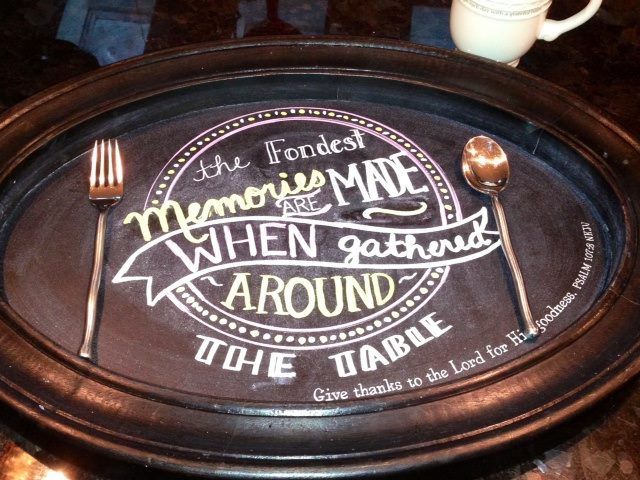 the Fondest
Memories
ARE
MADE
WHEN gathered
AROUND
THE TABLE
Give thanks to the Lord for His goodness. PSALM 107:8 NKJV